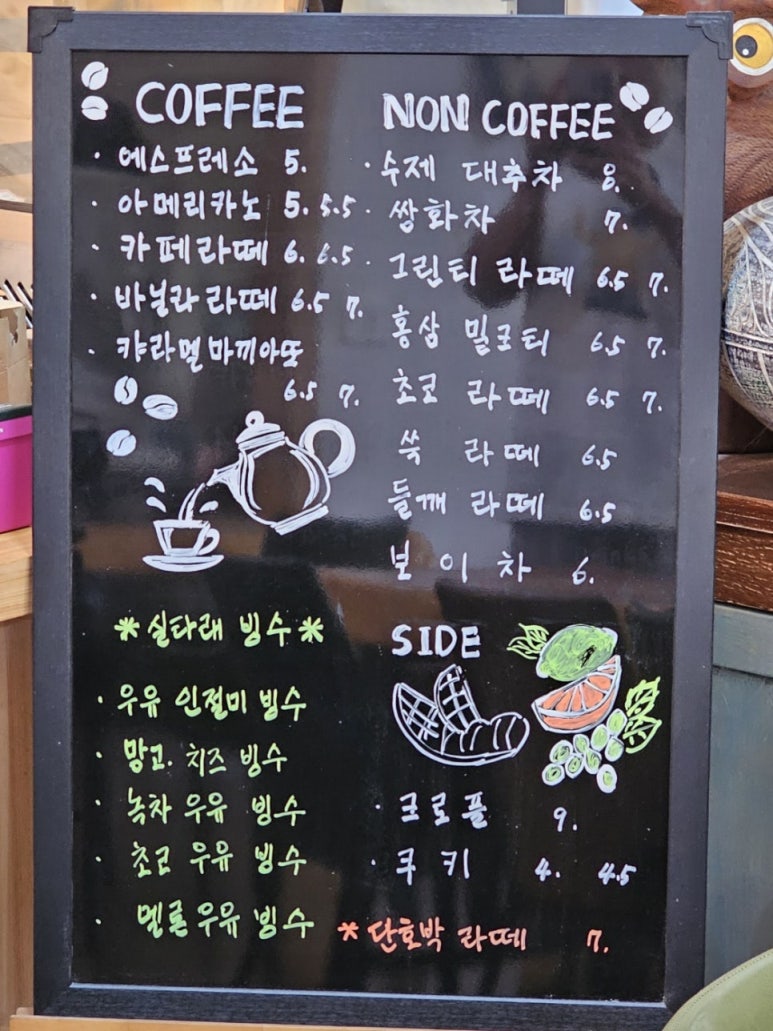 COFFEE
· 에스프레소 5.
· 아메리카노 5. 5.5
· 카페라떼 6. 6.5
· 바닐라 라떼 6.5 7.
· 캬라멜 마끼아또
6.5 7.
NON COFFEE
· 수제 대추차 8.
· 쌍화차 7.
· 그린티 라떼 6.5 7.
홍삼 밀크티 6.5 7.
초코 라떼 6.5 7.
쑥 라떼 6.5
들깨 라떼 6.5
보이차 6.
*실타래 빙수*
· 우유 인절미 빙수
· 망고. 치즈 빙수
· 녹차 우유 빙수
· 초코 우유 빙수
· 멜론 우유 빙수
SIDE
· 크로플 9.
· 쿠키 4. 4.5
* 단호박 라떼 7.